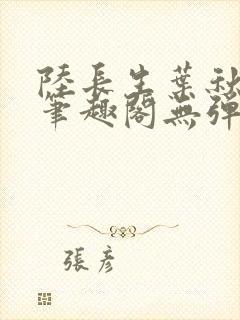 陸長生葉秋
筆趣閣無彈
張彥